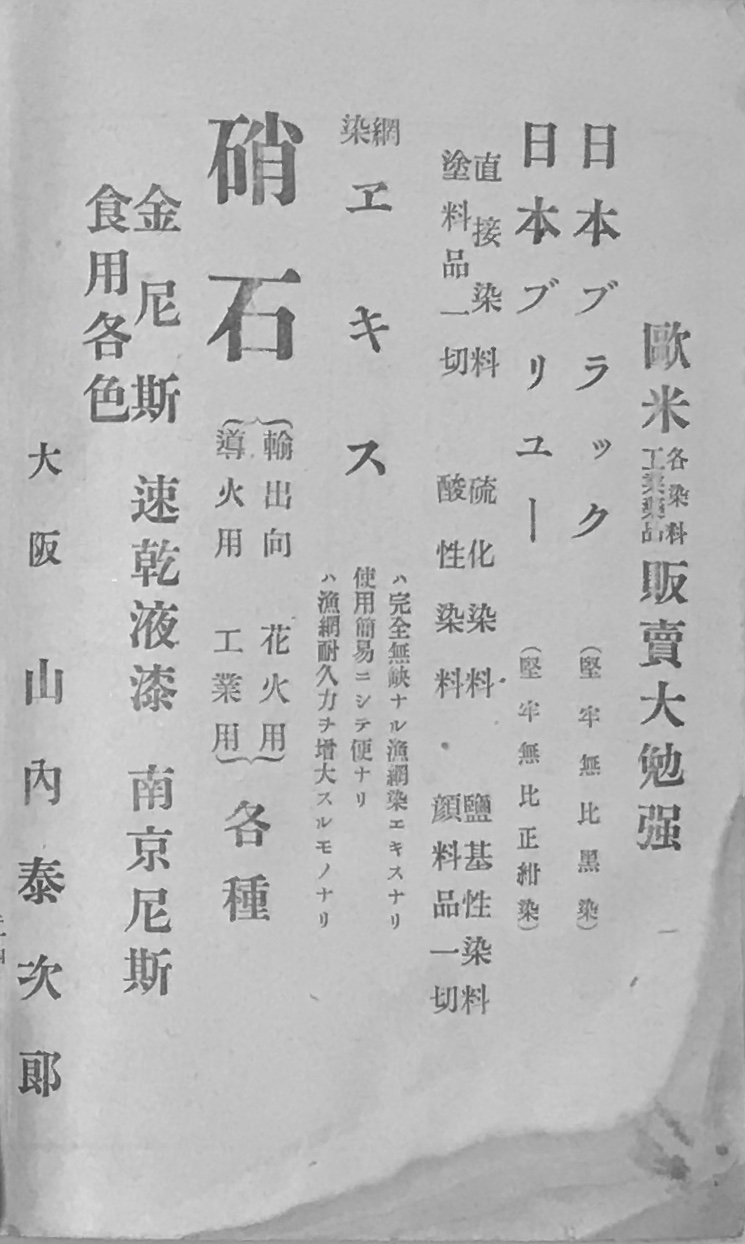 歐米各染料工業藥品販賣大勉强
日本ブラック(堅牢無比黑染)
日本ブリユー(堅牢無比正紺染)
直接染料 硫化染料 鹽基性染料
塗料品一切 酸性染料 顔料品一切
網染ヱキス
ハ完全無缺ナル漁網染エキスナリ
使用簡易ニシテ便ナリ
ハ漁網耐久力ヲ增大スルモノナリ
硝石
輸出向 花火用
導火用 工業用
各種
金尼斯 速乾液漆 南京尼斯
食用各色
大阪 山內泰次郎